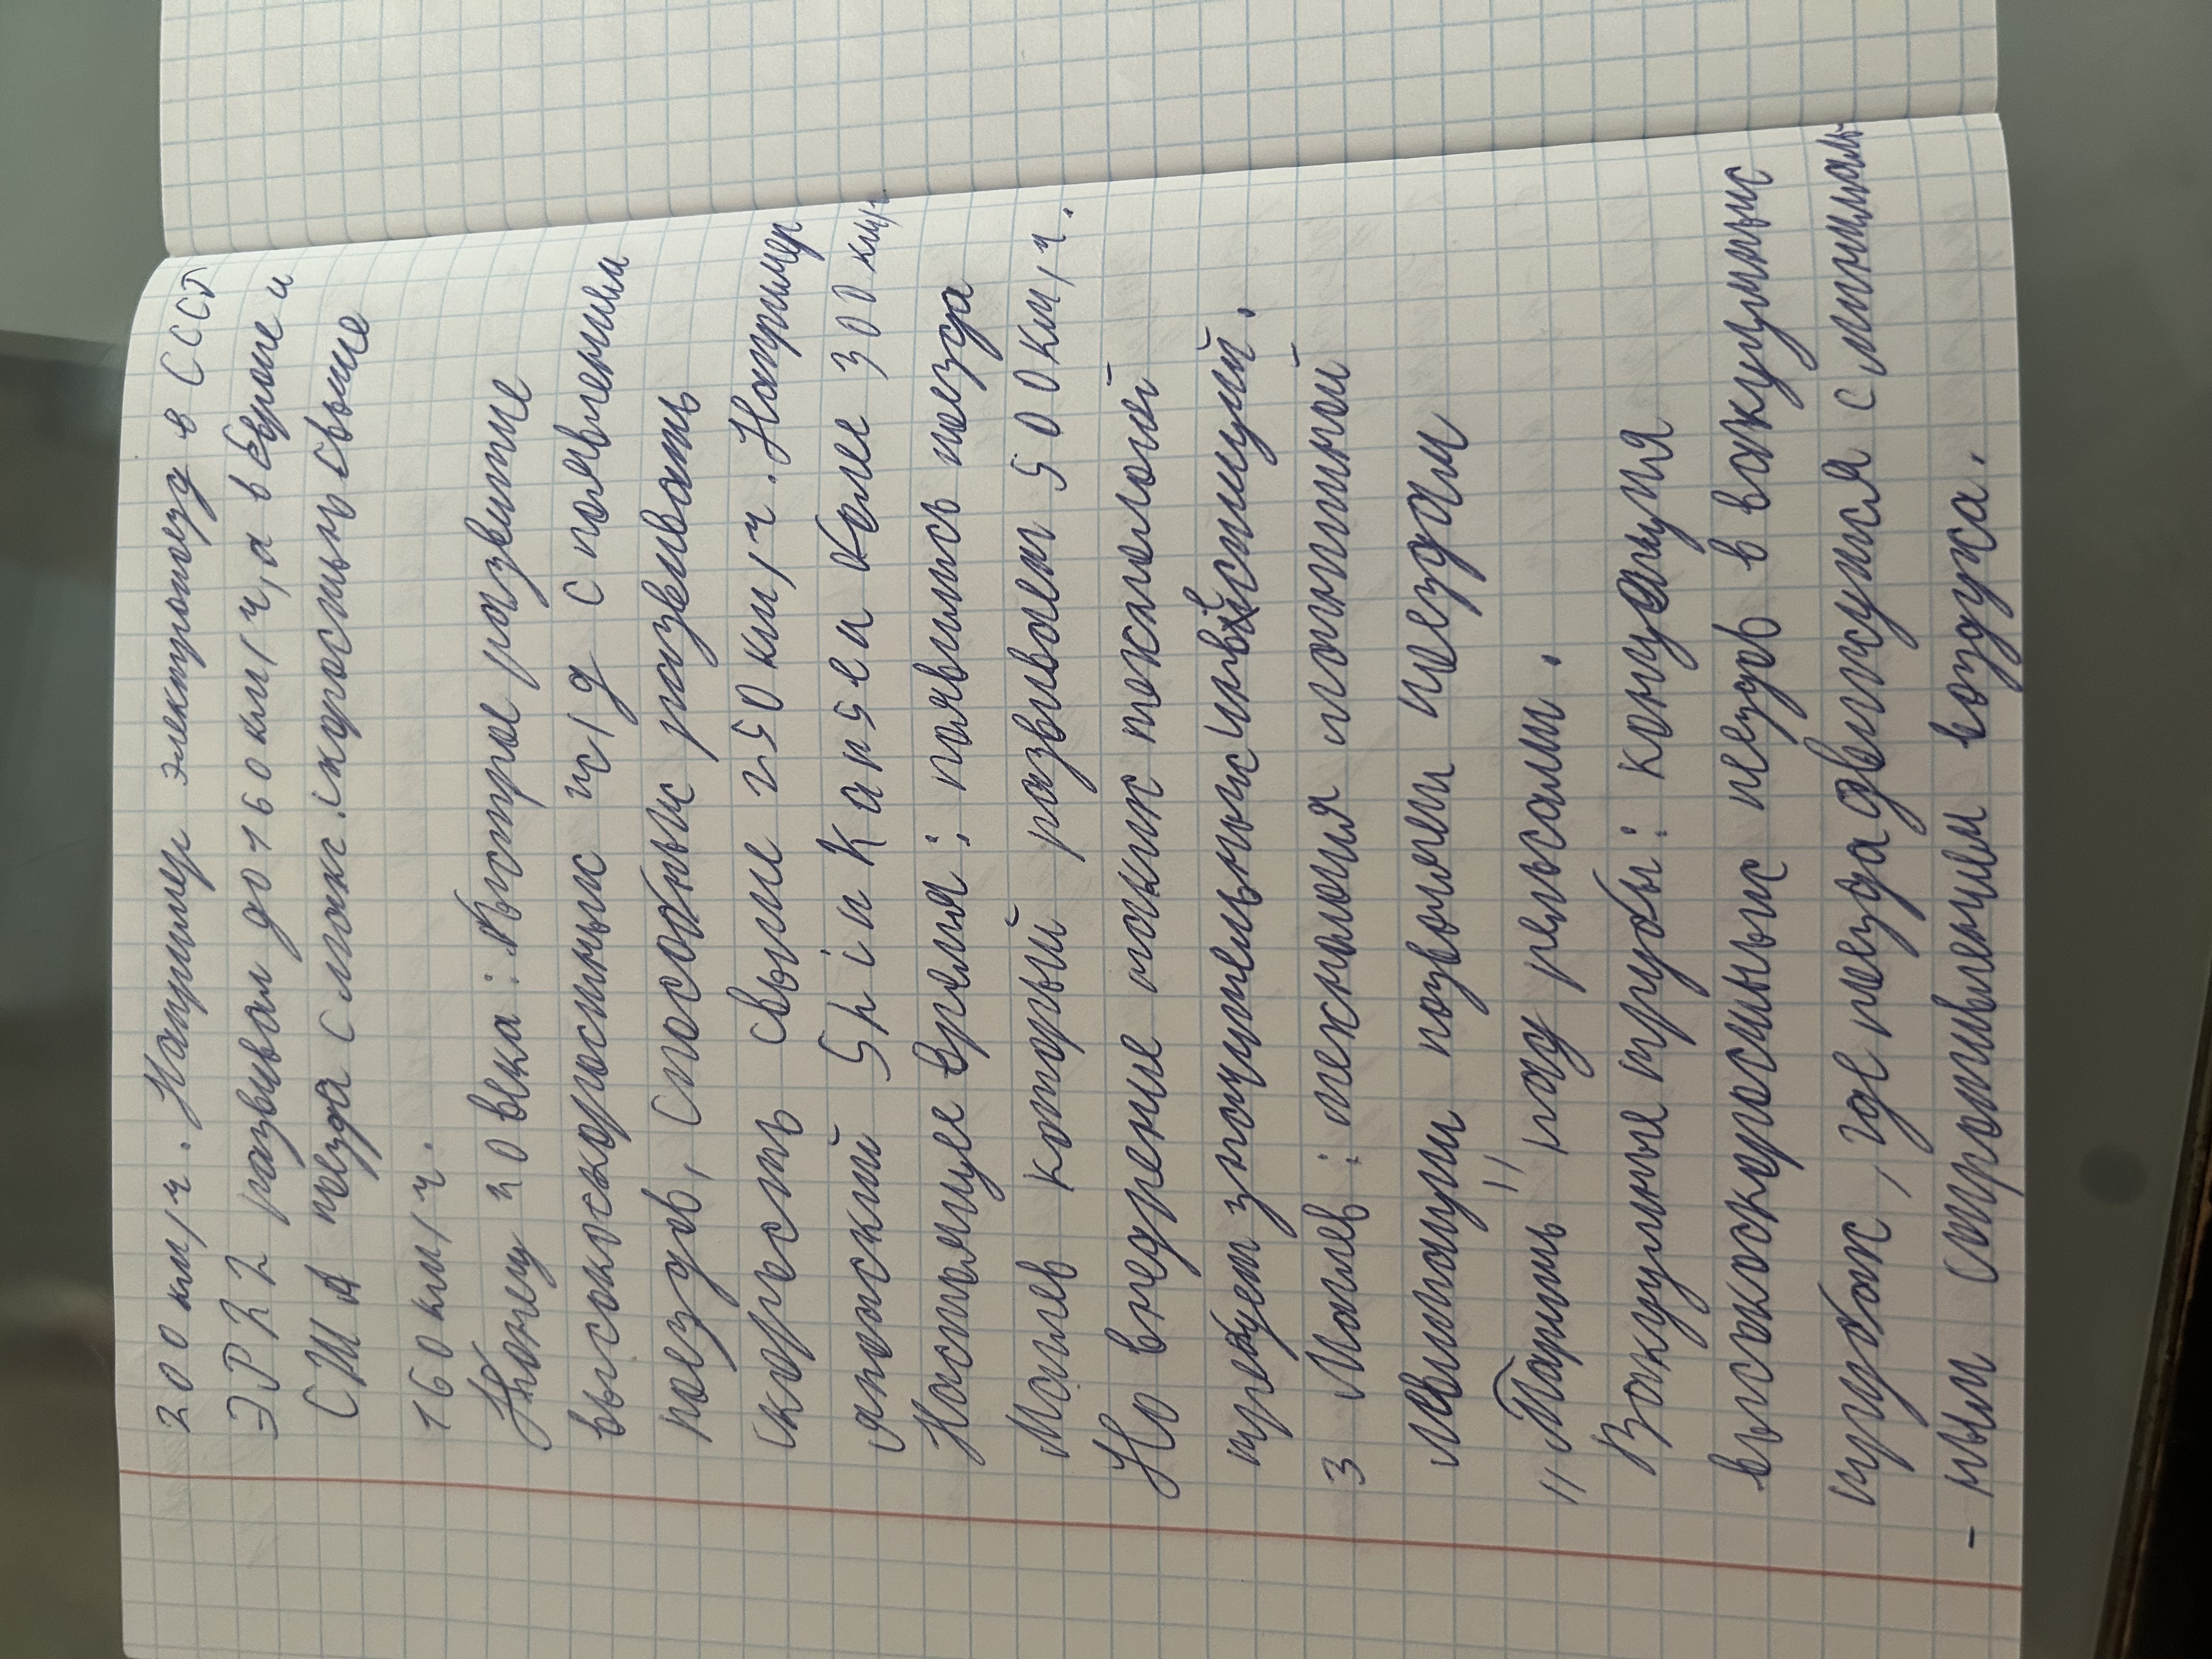 200 км/ч. Например электропоезд в СССР
ЭР22 развивал до 160 км/ч, а в Европе и
США поезда с макс. скоростью свыше
160 км/ч.
Конец 20 века: Быстрое развитие
высокоскоросных ж/д с появлением
поездов, способных развивать
скорость свыше 250 км/ч. Например
японский Shinkansen более 300 км/ч
Настоящее время: появились поезда
Маглев который развивает 500 км/ч.
Но внедрение таких технологий
требует значительных инвестиций.
3 Маглев: технология магнитной
левитации позволяет поездам
"Парить" над рельсами.
Вакумные трубы: концепция
высокоскоросных поездов в вакуумных
трубах, где поезда движутся с минималь
- ным сопротивлением воздуха.